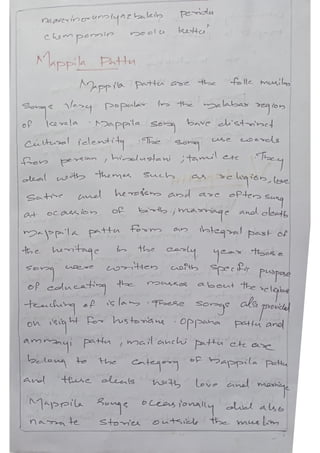 perida
chempannin noolu kettu'
Mappila Pattu
Mappila Pattu are the folk muslim
Songs very popular in the malabar region
of kerala. Mappila song have distinct
Cultural identity. The song use words
from persian, hindustani, tamil etc They
deal with themes such as religion, love
Satire and heroism and are often sung
at ocassion of birth, marriage and death
mappila pattu form an integral part of
the heritage In the early year these
song were written with specific purpose
of educating the masses about the religious
teaching of islam. These songs also provided
on insight for historians. Oppana pattu and
ammayi pattu, mailanchi pattu etc are
belong to the category of Mappila pattu
and these deals with love and marriage
Mappila Songs occasionally deal also
narrate stories outside the muslim